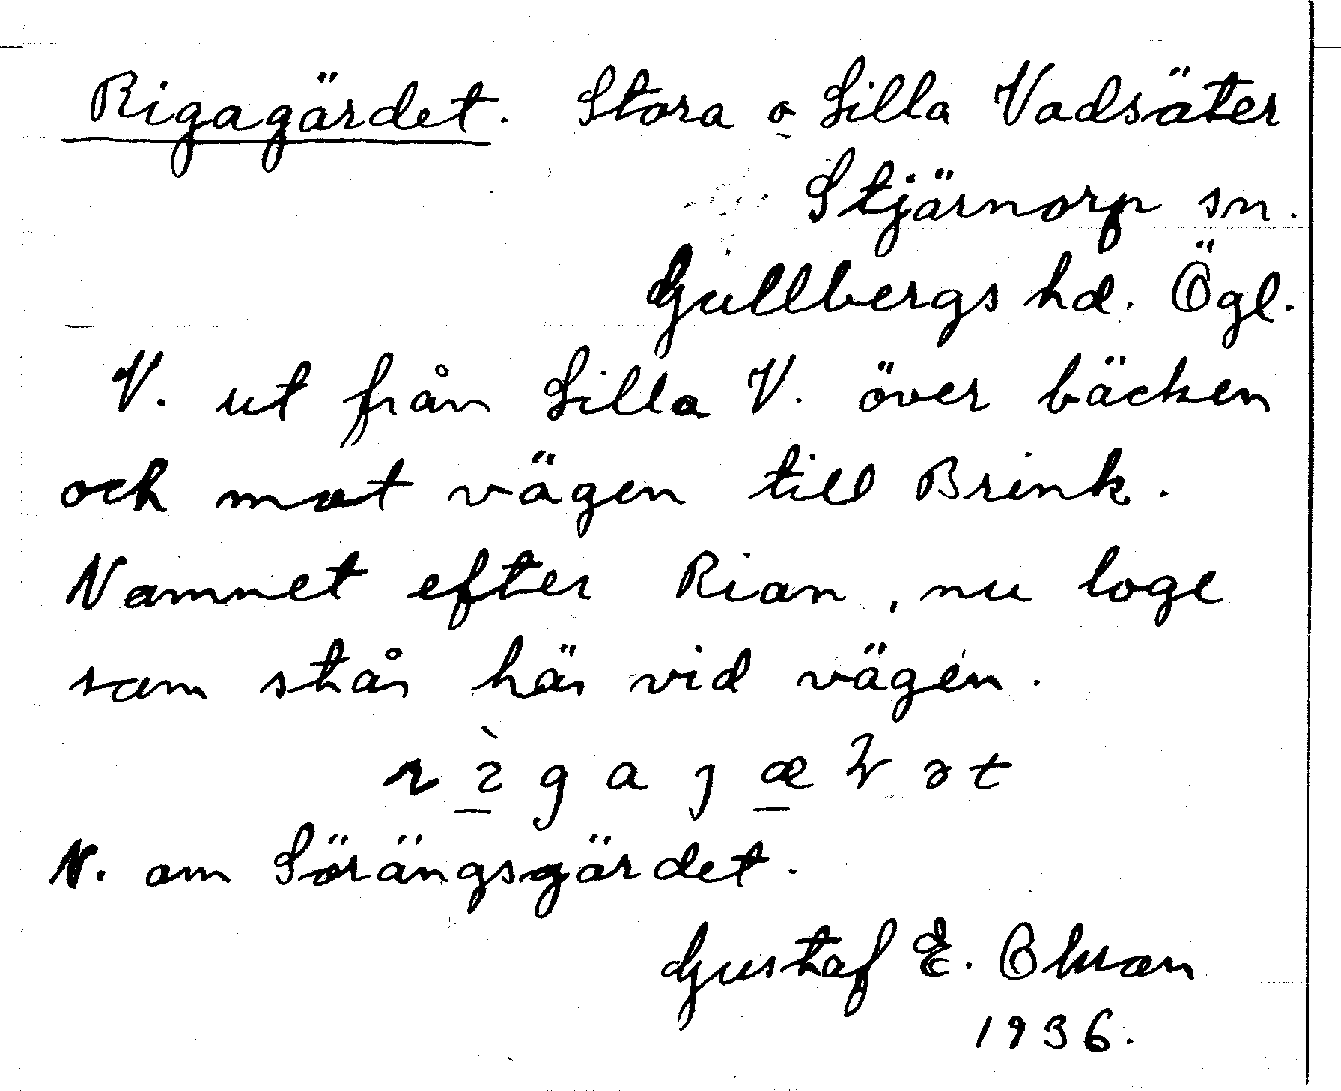 Rigagärdet. Stora o Lilla Vadsäter
Stjärnorp sn.
Gullbergs hd. Ögl.
V. ut från Lilla V. över bäcken
och mot vägen till Brink.
Namnet efter Rian, nu loge
som står här vid vägen.
N. om Sörängsgärdet.
Gustaf E.
1936.